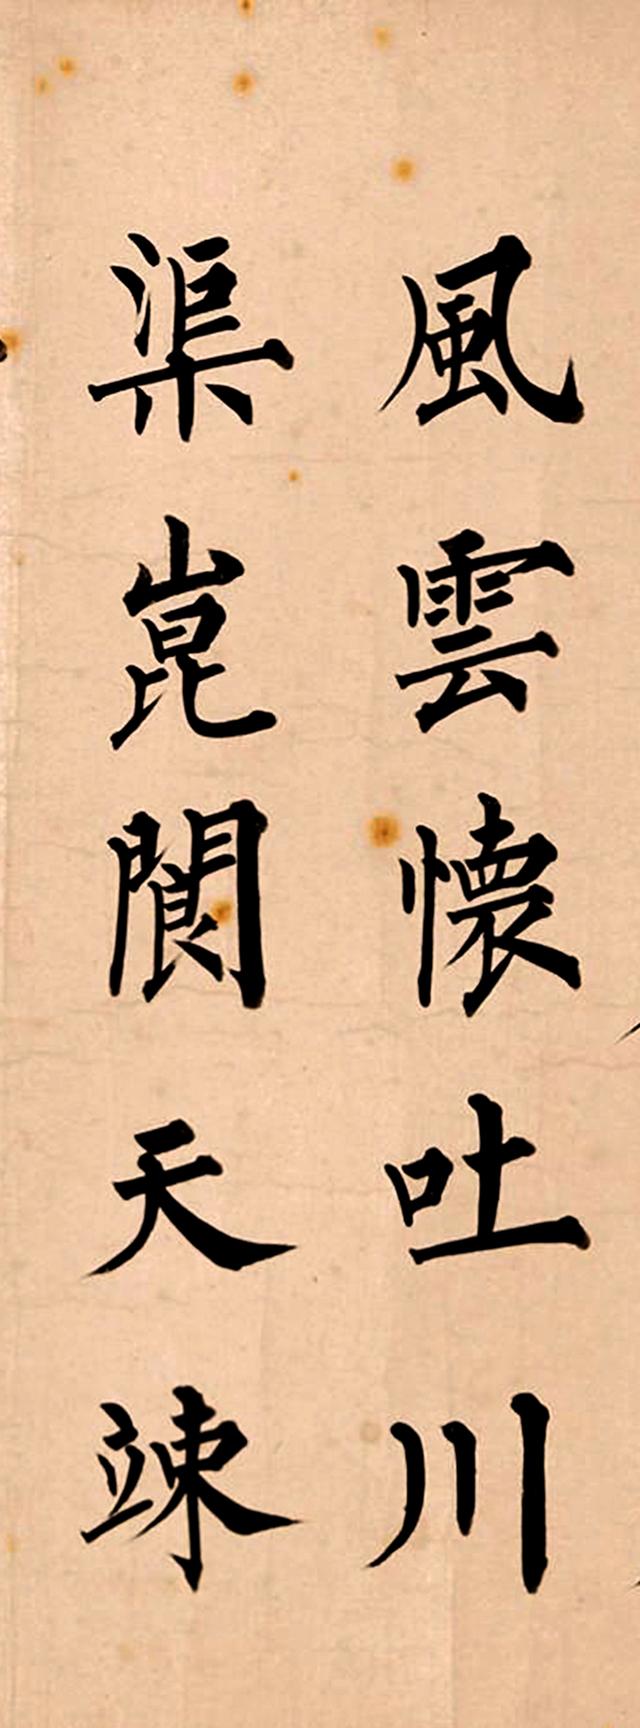 風雲懷吐川
渠崑閬天竦